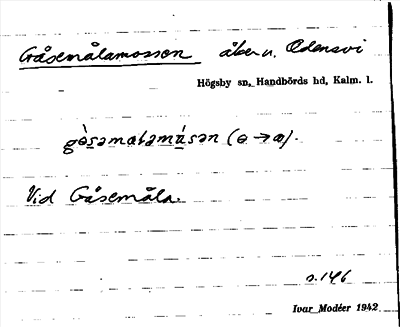 Gåsemålamossen åker u. Odensvi
Högsby sn, Handbörds hd, Kalm. l.
gòsəmalamúsən (ə → a).
Vid Gåsemåla.
s. 146
Ivar Modéer 1942